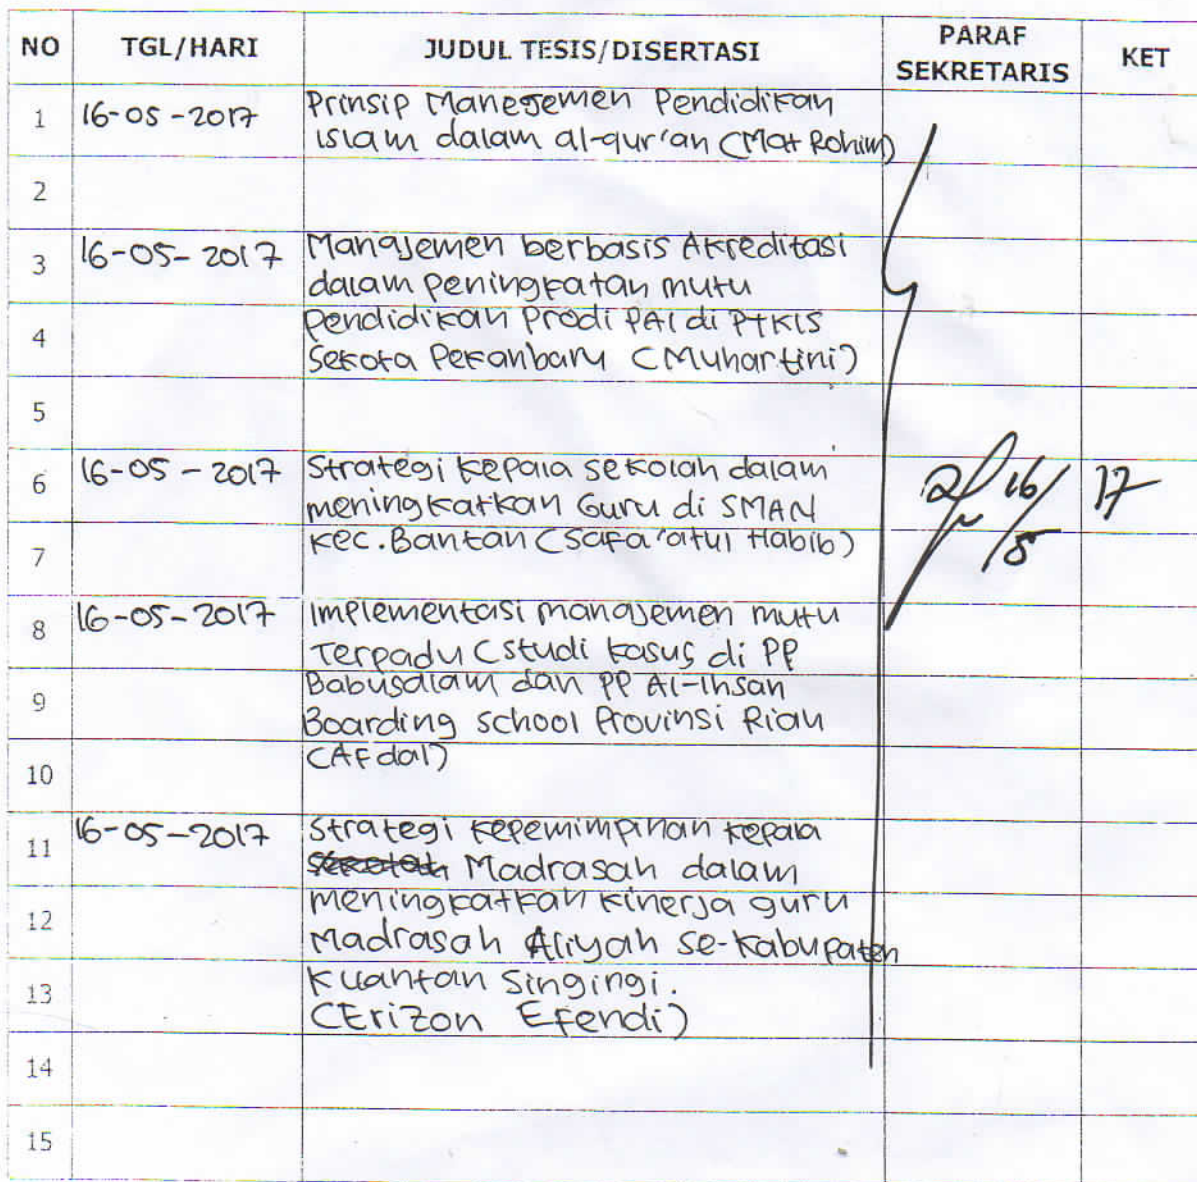 NO TGL/HARI JUDUL TESIS/DISERTASI PARAF SEKRETARIS KET
1 16-05-2017 Prinsip Manejemen Pendidikan
islam dalam al-qur'an (Mat Rohim)
2
3 16-05-2017 Manajemen berbasis Akreditasi
dalam peningkatan mutu
4 pendidikan Prodi PAI di PTKIS
Sekota Pekanbaru (Muhartini)
5
6 16-05-2017 Strategi kepala sekolah dalam
meningkatkan Guru di SMAN
7 Kec. Bantan (Safa'atul Habib)
16/5 17
8 16-05-2017 Implementasi manajemen mutu
Terpadu (studi kasus di PP
9 Babusalam dan PP Al-Ihsan
Boarding school Provinsi Riau
10 (Afdal)
11 16-05-2017 Strategi kepemimpinan kepala
sekolah Madrasah dalam
12 meningkatkan kinerja guru
Madrasah Aliyah se-Kabupaten
13 Kuantan Singingi.
(Erizon Efendi)
14
15